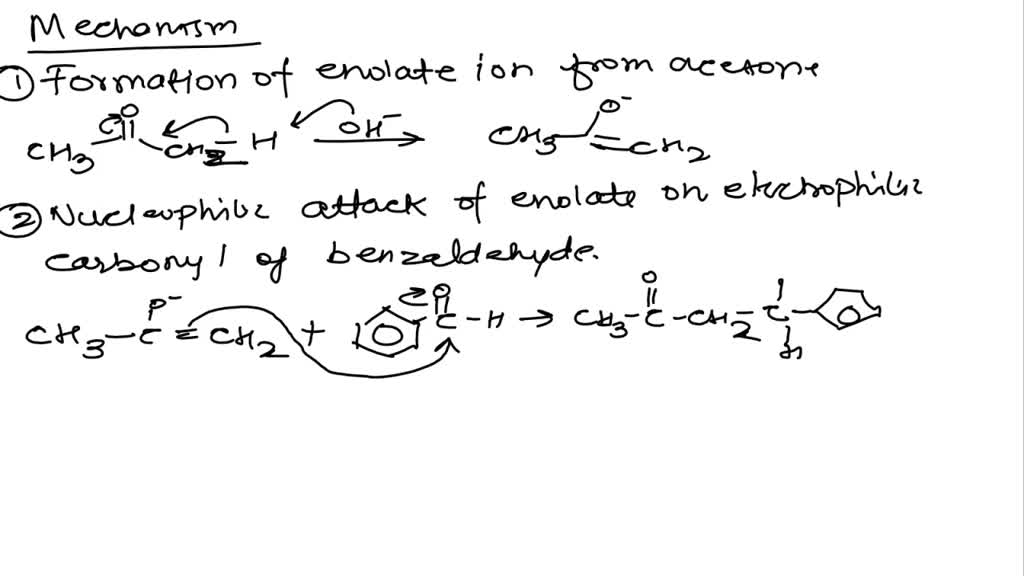 Mechanism
① Formation of enolate ion from acetone
O O⁻
CH3 CH2 – H OH⁻ CH3 CH2
② Nucleophilic attack of enolate on electrophilic
carbonyl of benzaldehyde.
O O
CH3 – C = CH2 + C – H → CH3 – C – CH2 – C